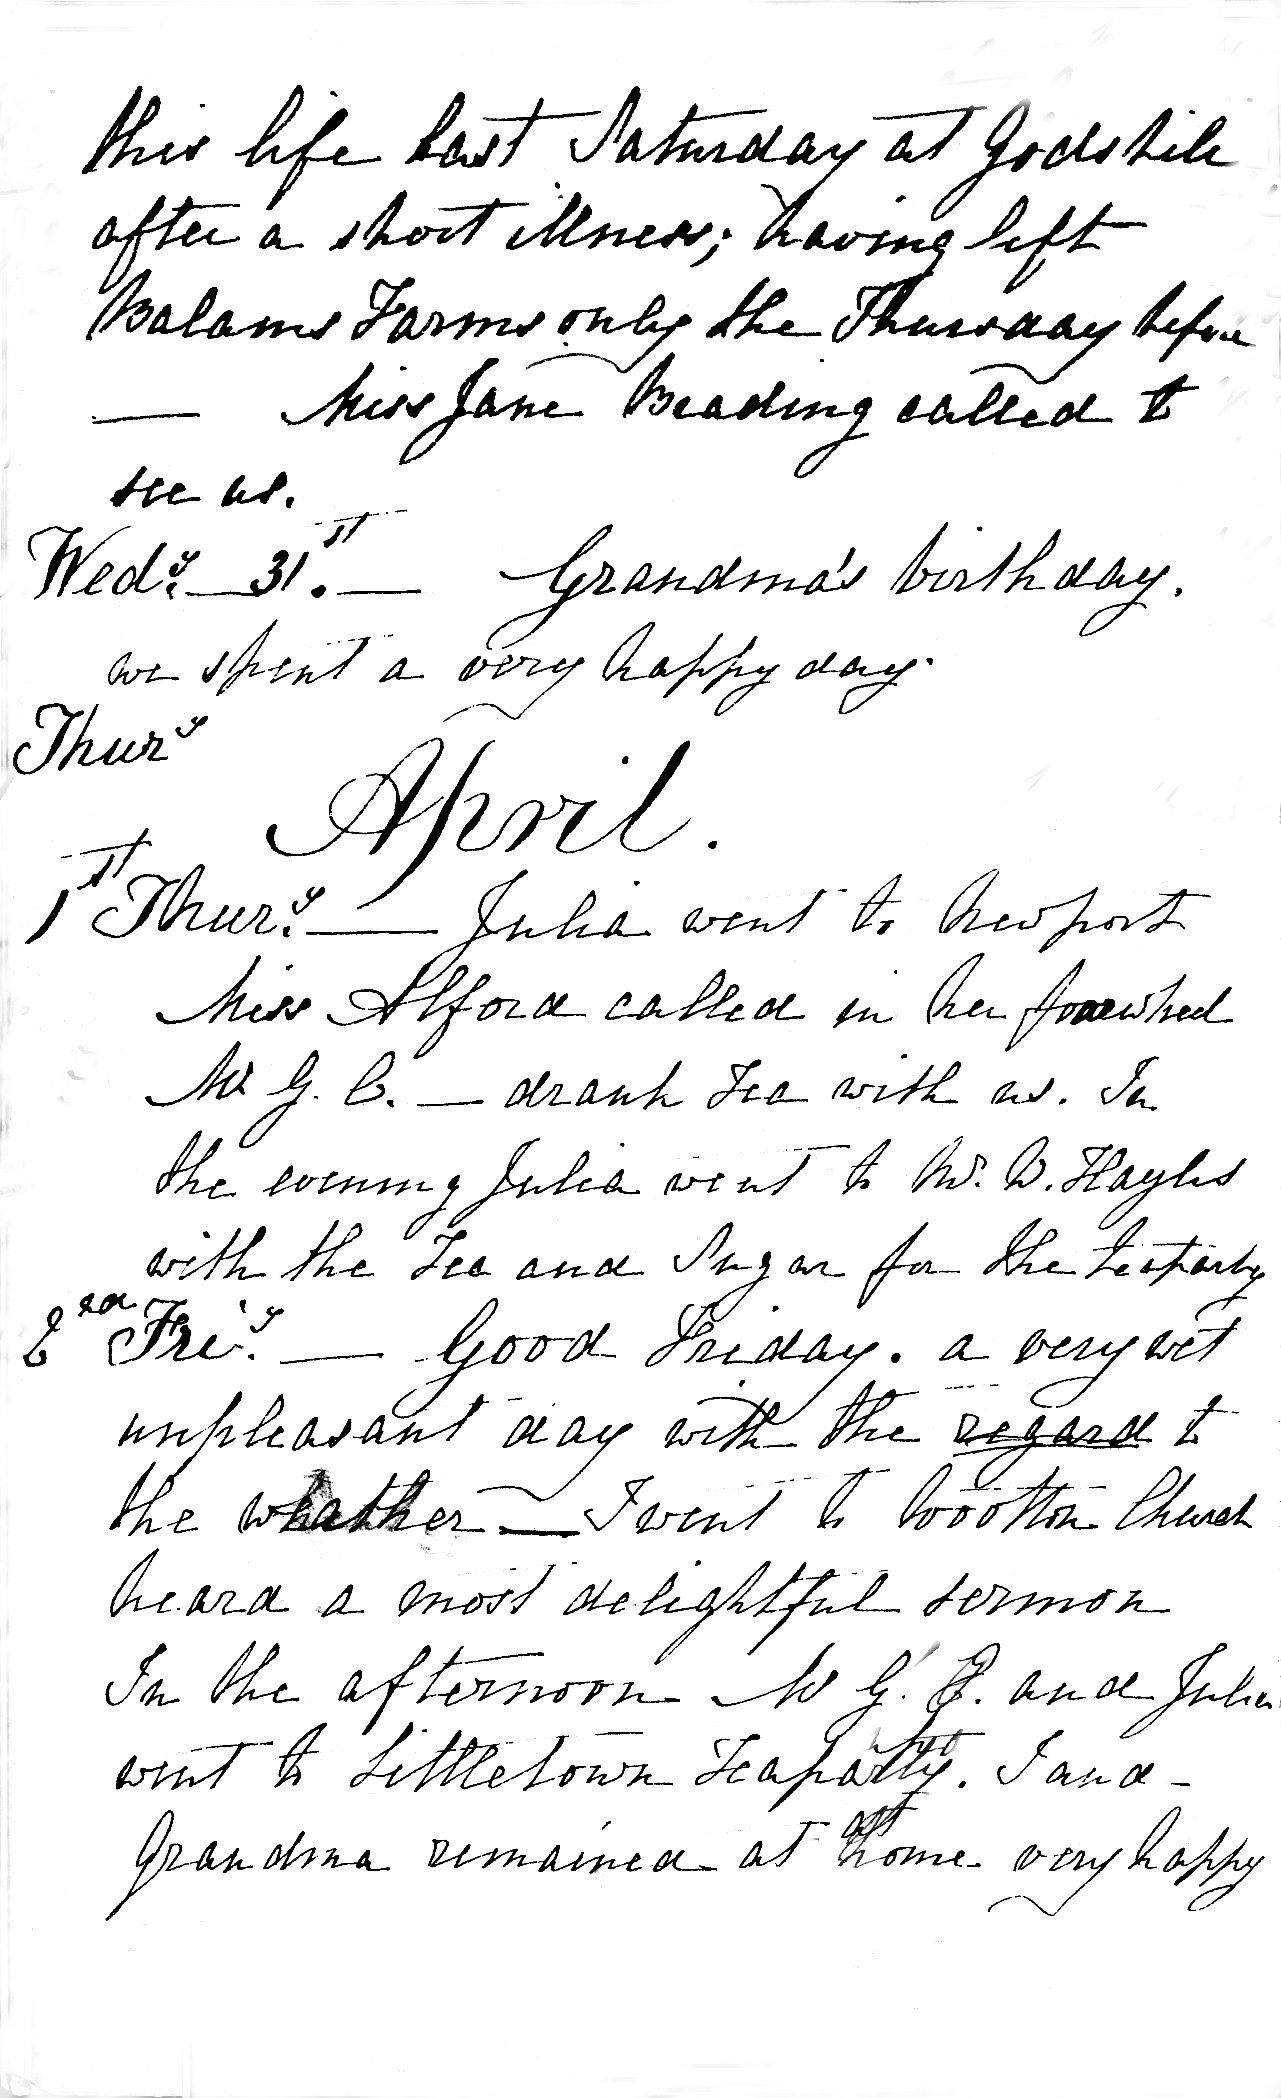 this life last Saturday at Godshile
after a short illness; having left
Balams Farms only the Thursday before
— Miss Jane Beading called to
see us.
Wedy. — 31st. — Grandma's birthday.
we spent a very happy day.
Thury
April.
1st Thury. — Julia went to Newport
Miss Alford called in her fourwheel
Mr G. C. — drank Tea with us. In
the evening Julia went to Mr. W. Hayles
with the Tea and Sugar for the teaparty
2nd Friy. — Good Friday. a very wet
unpleasant day with the regard to
the weather — I went to Wootton Church
heard a most delightful sermon
In the afternoon Mr G. C. and Julia
went to Littletown Teaparty. I and -
Grandma remained at home very happy